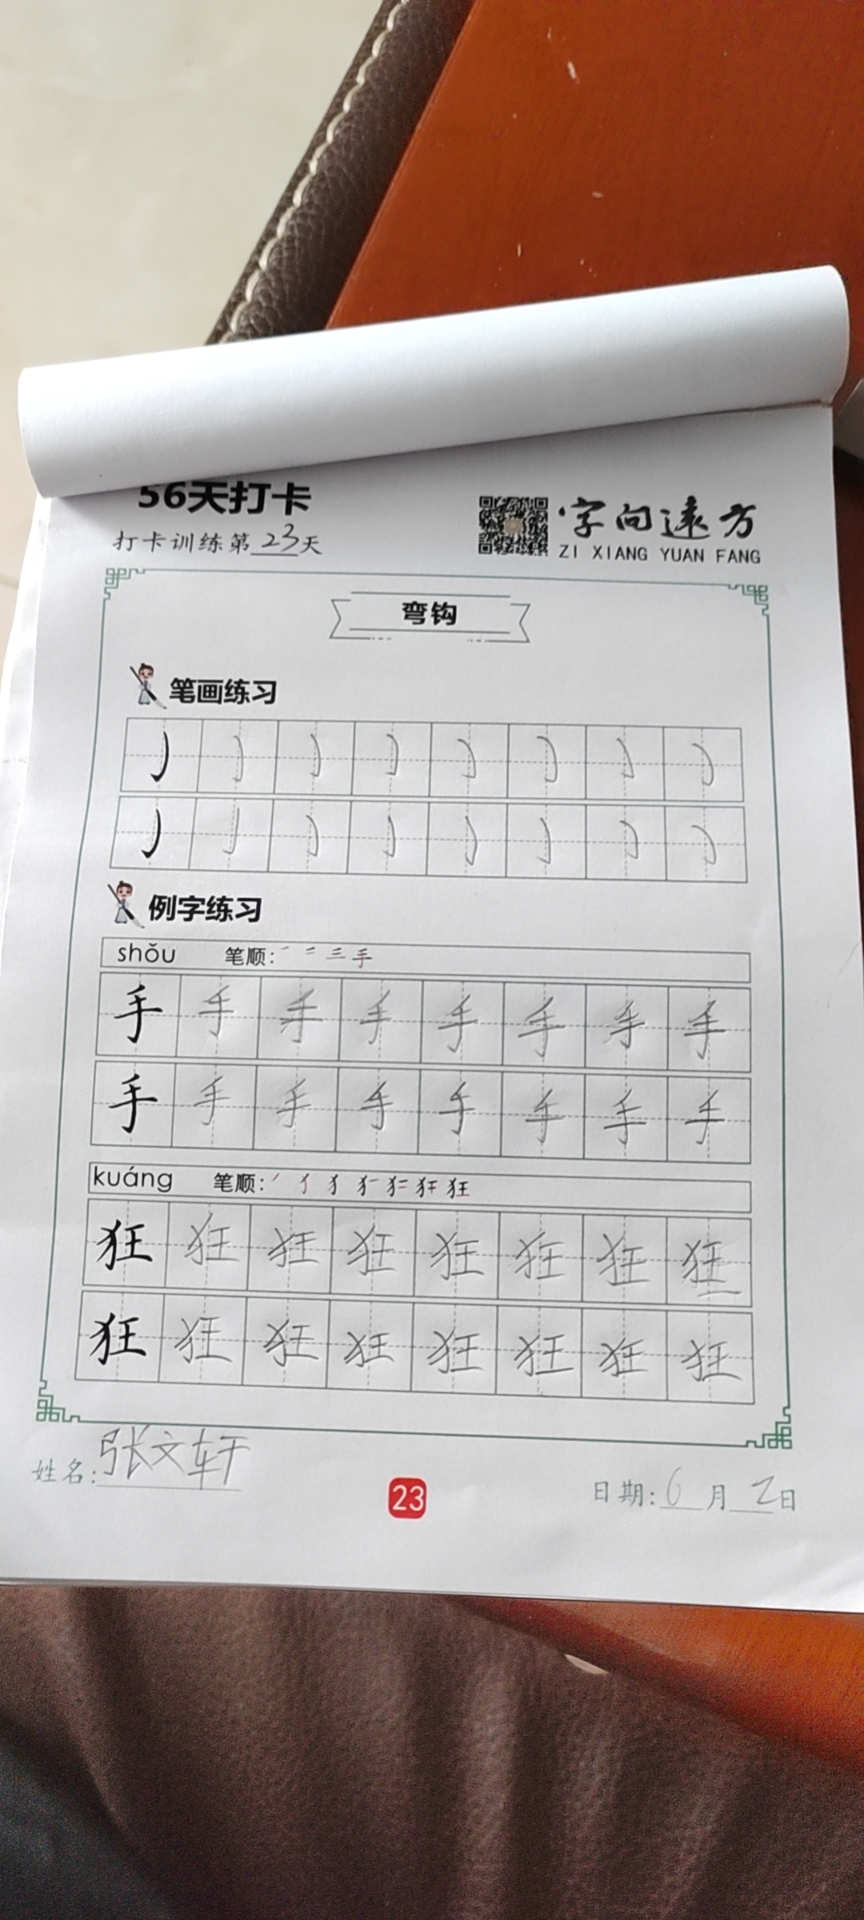 56天打卡
打卡训练第23天
字向远方
ZI XIANG YUAN FANG
弯钩
笔画练习
例字练习
shǒu 笔顺: 手
手 手 手 手 手 手 手 手
手 手 手 手 手 手 手 手
kuáng 笔顺: 狂
狂 狂 狂 狂 狂 狂 狂 狂
狂 狂 狂 狂 狂 狂 狂 狂
姓名: 张文轩
23
日期: 6月2日